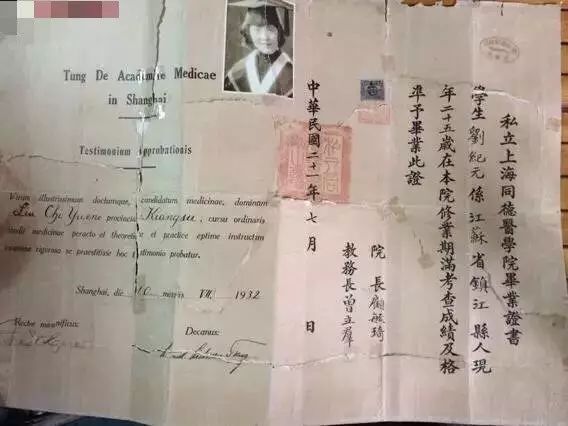 Tung De Academiae Medicae
in Shanghai
Testimonium Approbationis
Virum illustrissimum doctumque, candidatum medicinae, dominum
Liu Chi Yuone provinciae Kiangsu, cursu ordinaris
studii medicinae peracto et theoretice et practice optime instructum
examine rigoroso se praestitisse hoc testimonio probatur.
Shanghai, die 10 mensis VII, 1932
Rector magnificus:
Decanus:
私立上海同德醫學院畢業證書
學生劉紀元係江蘇省鎮江縣人現
年二十五歲在本院修業期滿考查成績及格
準予畢業此證
院長顧毓琦
教務長曾立羣
中華民國二十一年七月 日